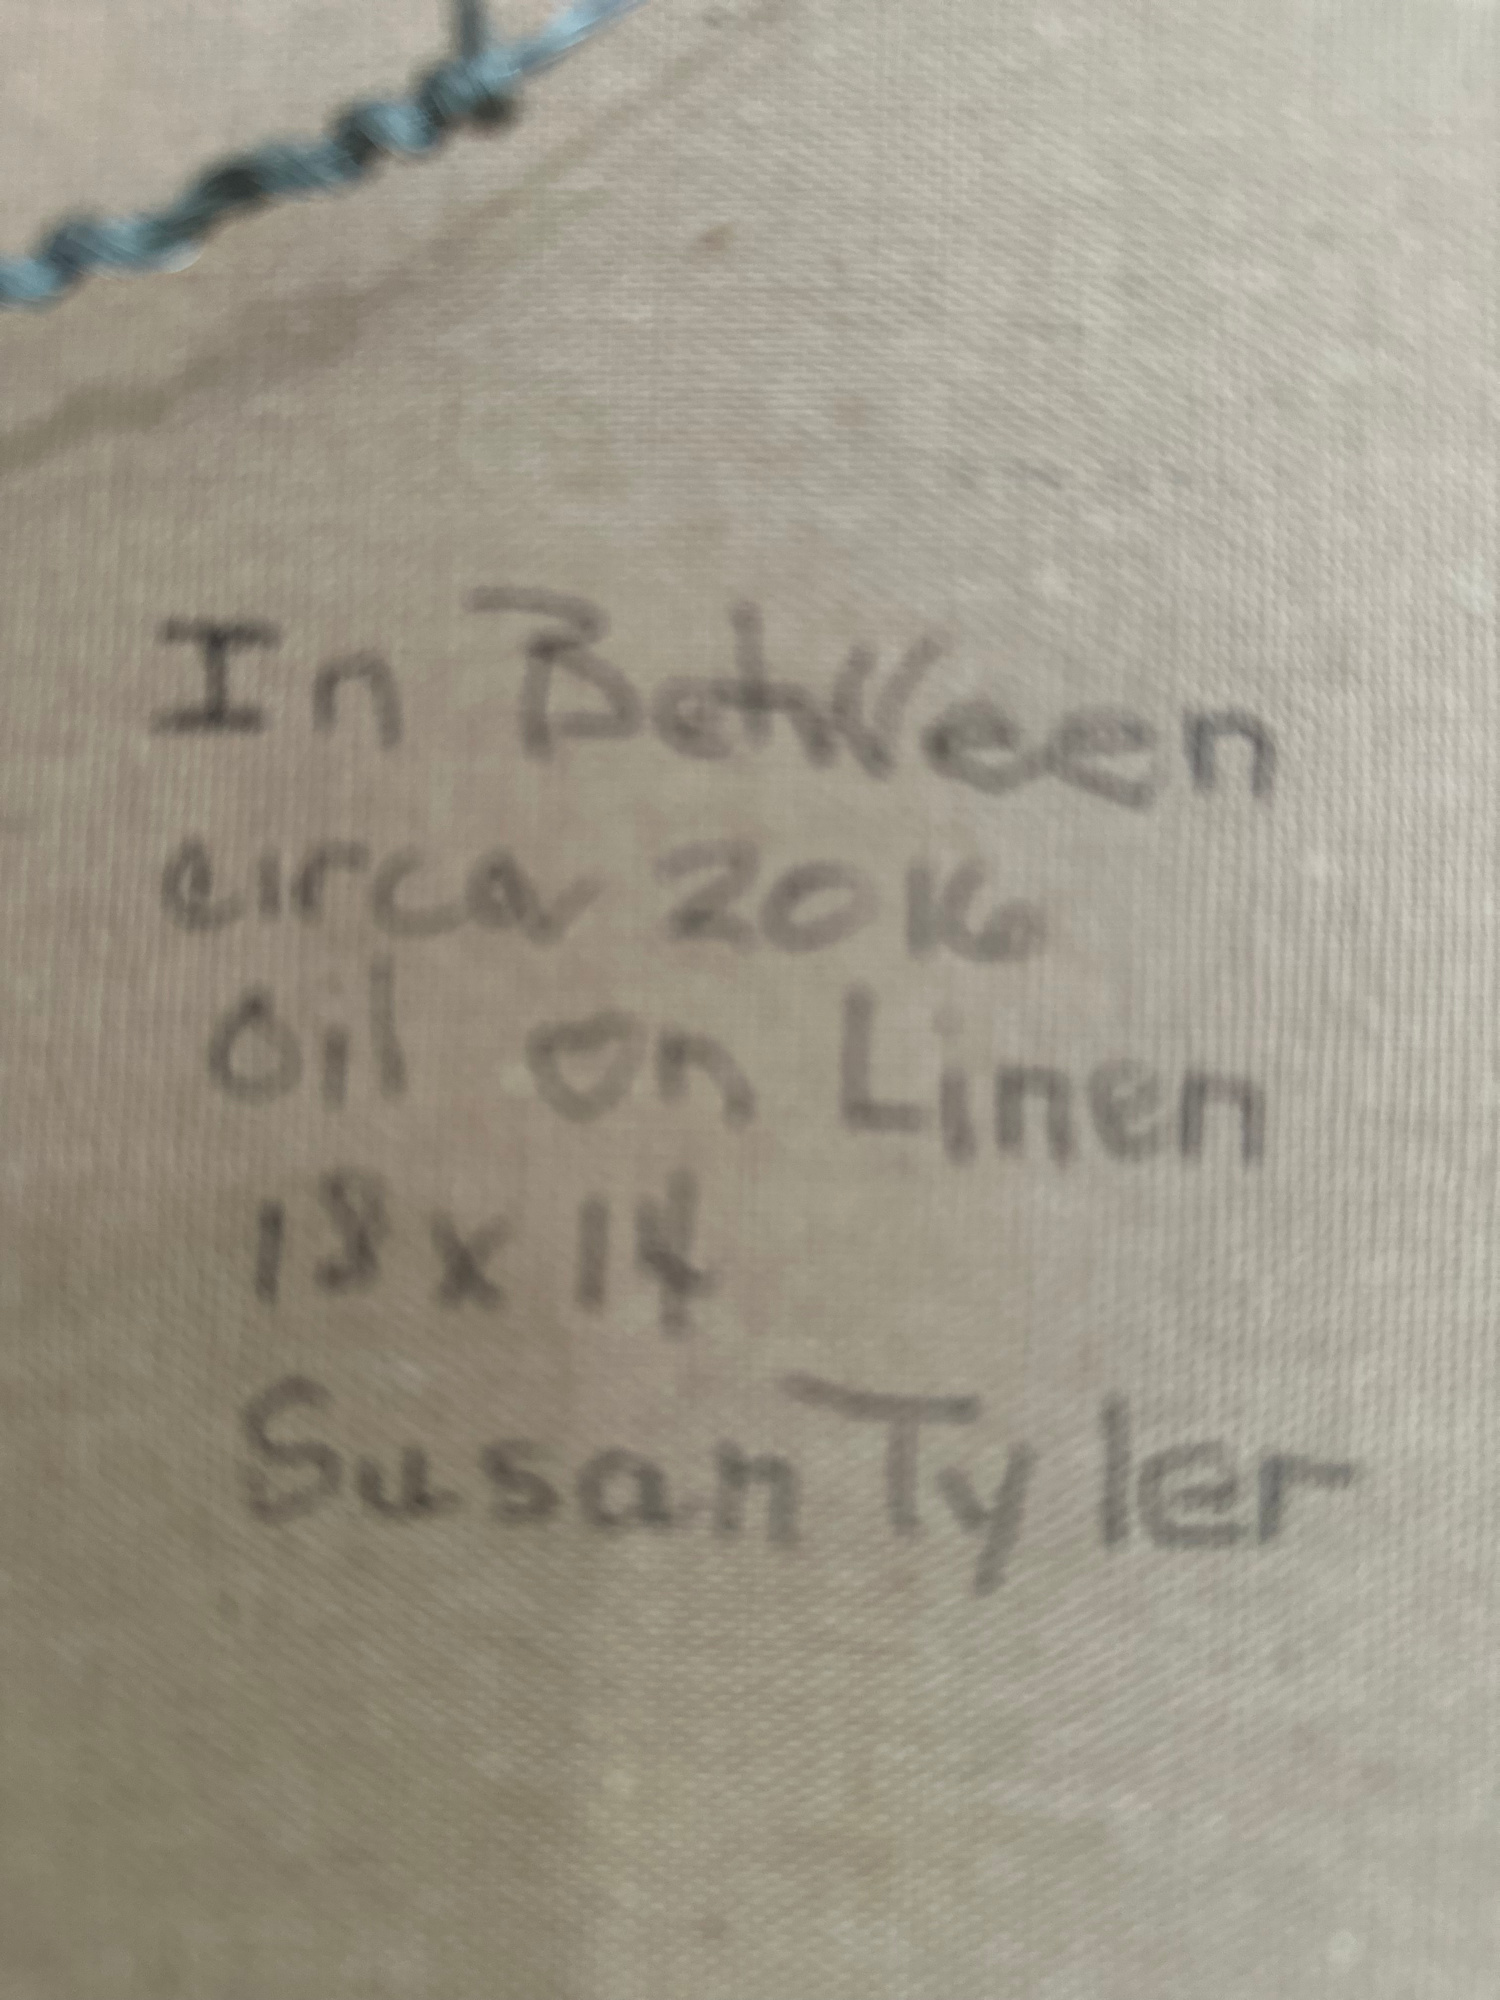 In Between
circa 2016
Oil on Linen
18 x 14
Susan Tyler